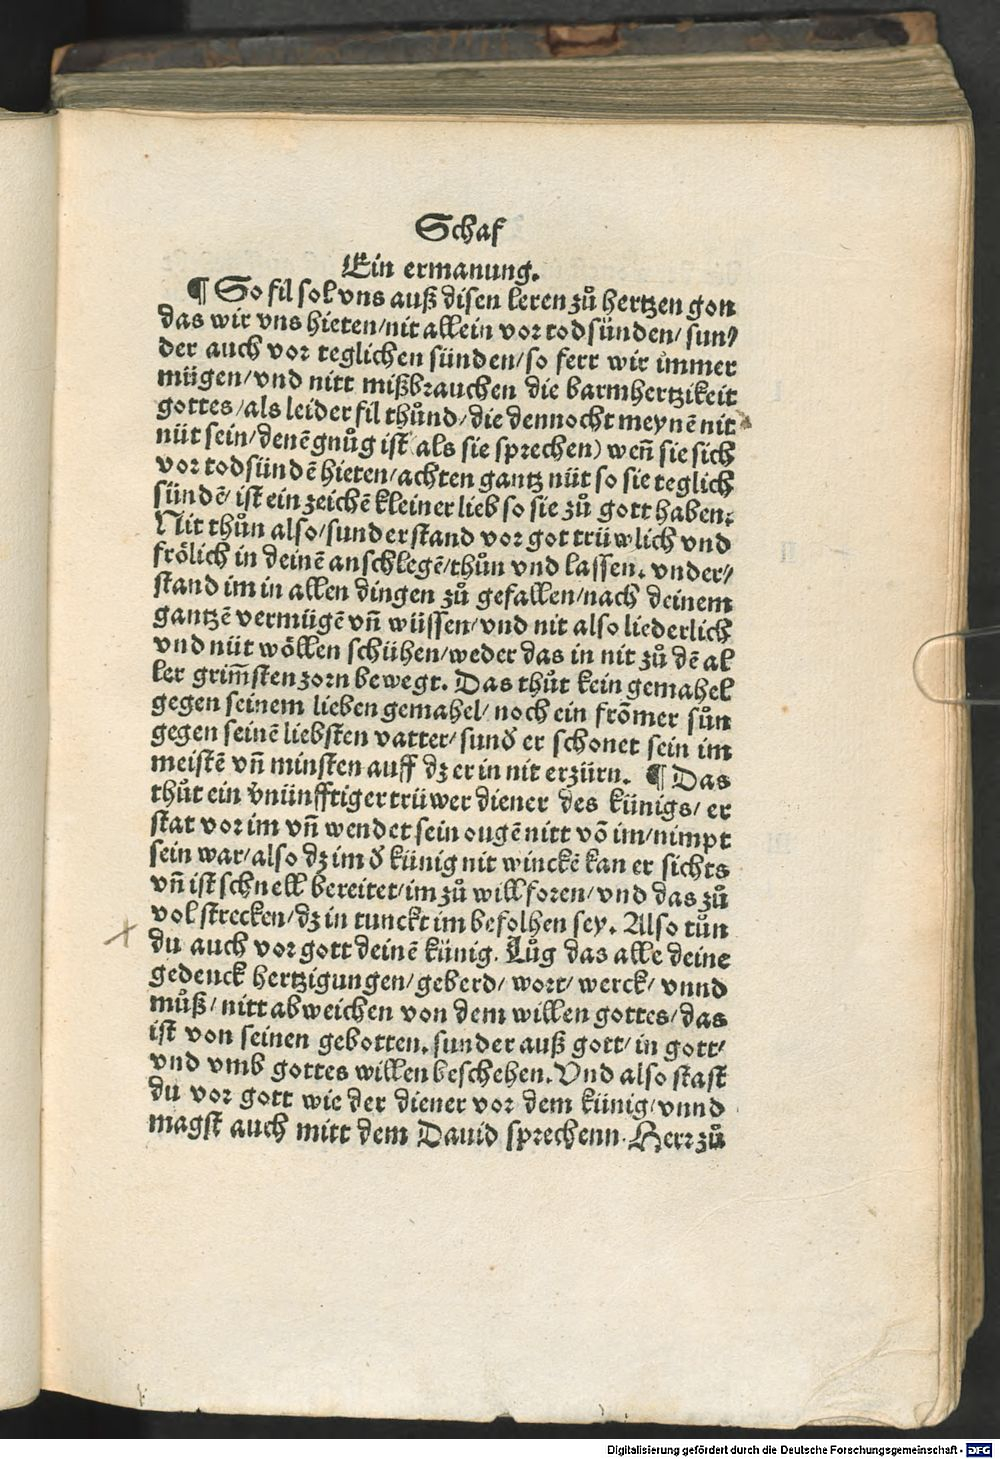 Schaf
Ein ermanung.
¶ So fil sol vns auß disen leren zů hertzen gon
das wir vns hieten/nit allein vor todsünden/ sun/
der auch vor teglichen sünden/so ferr wir immer
mügen/vnd nitt mißbrauchen die barmhertzikeit
gottes/als leider fil thůnd/die dennocht meynē nit
nüt sein/denē gnůg ist (als sie sprechen) weñ sie sich
vor todsündē hieten/achten gantz nüt so sie teglich
sündē/ ist ein zeichē kleiner lieb so sie zů gott haben.
Nit thůn also/sunder stand vor got trüwlich vnd
frölich in deinē anschlegē/thůn vnd lassen. vnder/
stand im in allen dingen zů gefallen/nach deinem
gantzē vermügē vñ wüssen/vnd nit also liederlich
vnd nüt wöllen schühen/weder das in nit zů dē al
ler grim̄sten zorn bewegt. Das thůt kein gemahel
gegen seinem lieben gemahel/ noch ein frōmer sůn
gegen seinē liebsten vatter/ sunđ er schonet sein im
meistē vñ minsten auff dz er in nit erzürn. ¶ Das
thůt ein v̄nünfftiger trüwer diener des künigs/ er
stat vor im vñ wendet sein ougē nitt vō im/nimpt
sein war/also dz im đ künig nit winckē kan er sichts
vñ ist schnell bereitet/im zů willforen/vnd das zů
volstrecken/dz in tunckt im befolhen sey. Also tůn
du auch vor gott deinē künig. Lůg das alle deine
gedenck hertzigungen/geberd/ wort/ werck/ vnnd
můß/ nitt abweichen von dem willen gottes/das
ist von seinen gebotten. sunder auß gott/ in gott/
vnd vmb gottes willen beschehen. Vnd also stast
du vor gott wie der diener vor dem künig/vnnd
magst auch mitt dem Dauid sprechenn. Herr zů
Digitalisierung gefördert durch die Deutsche Forschungsgemeinschaft - DFG